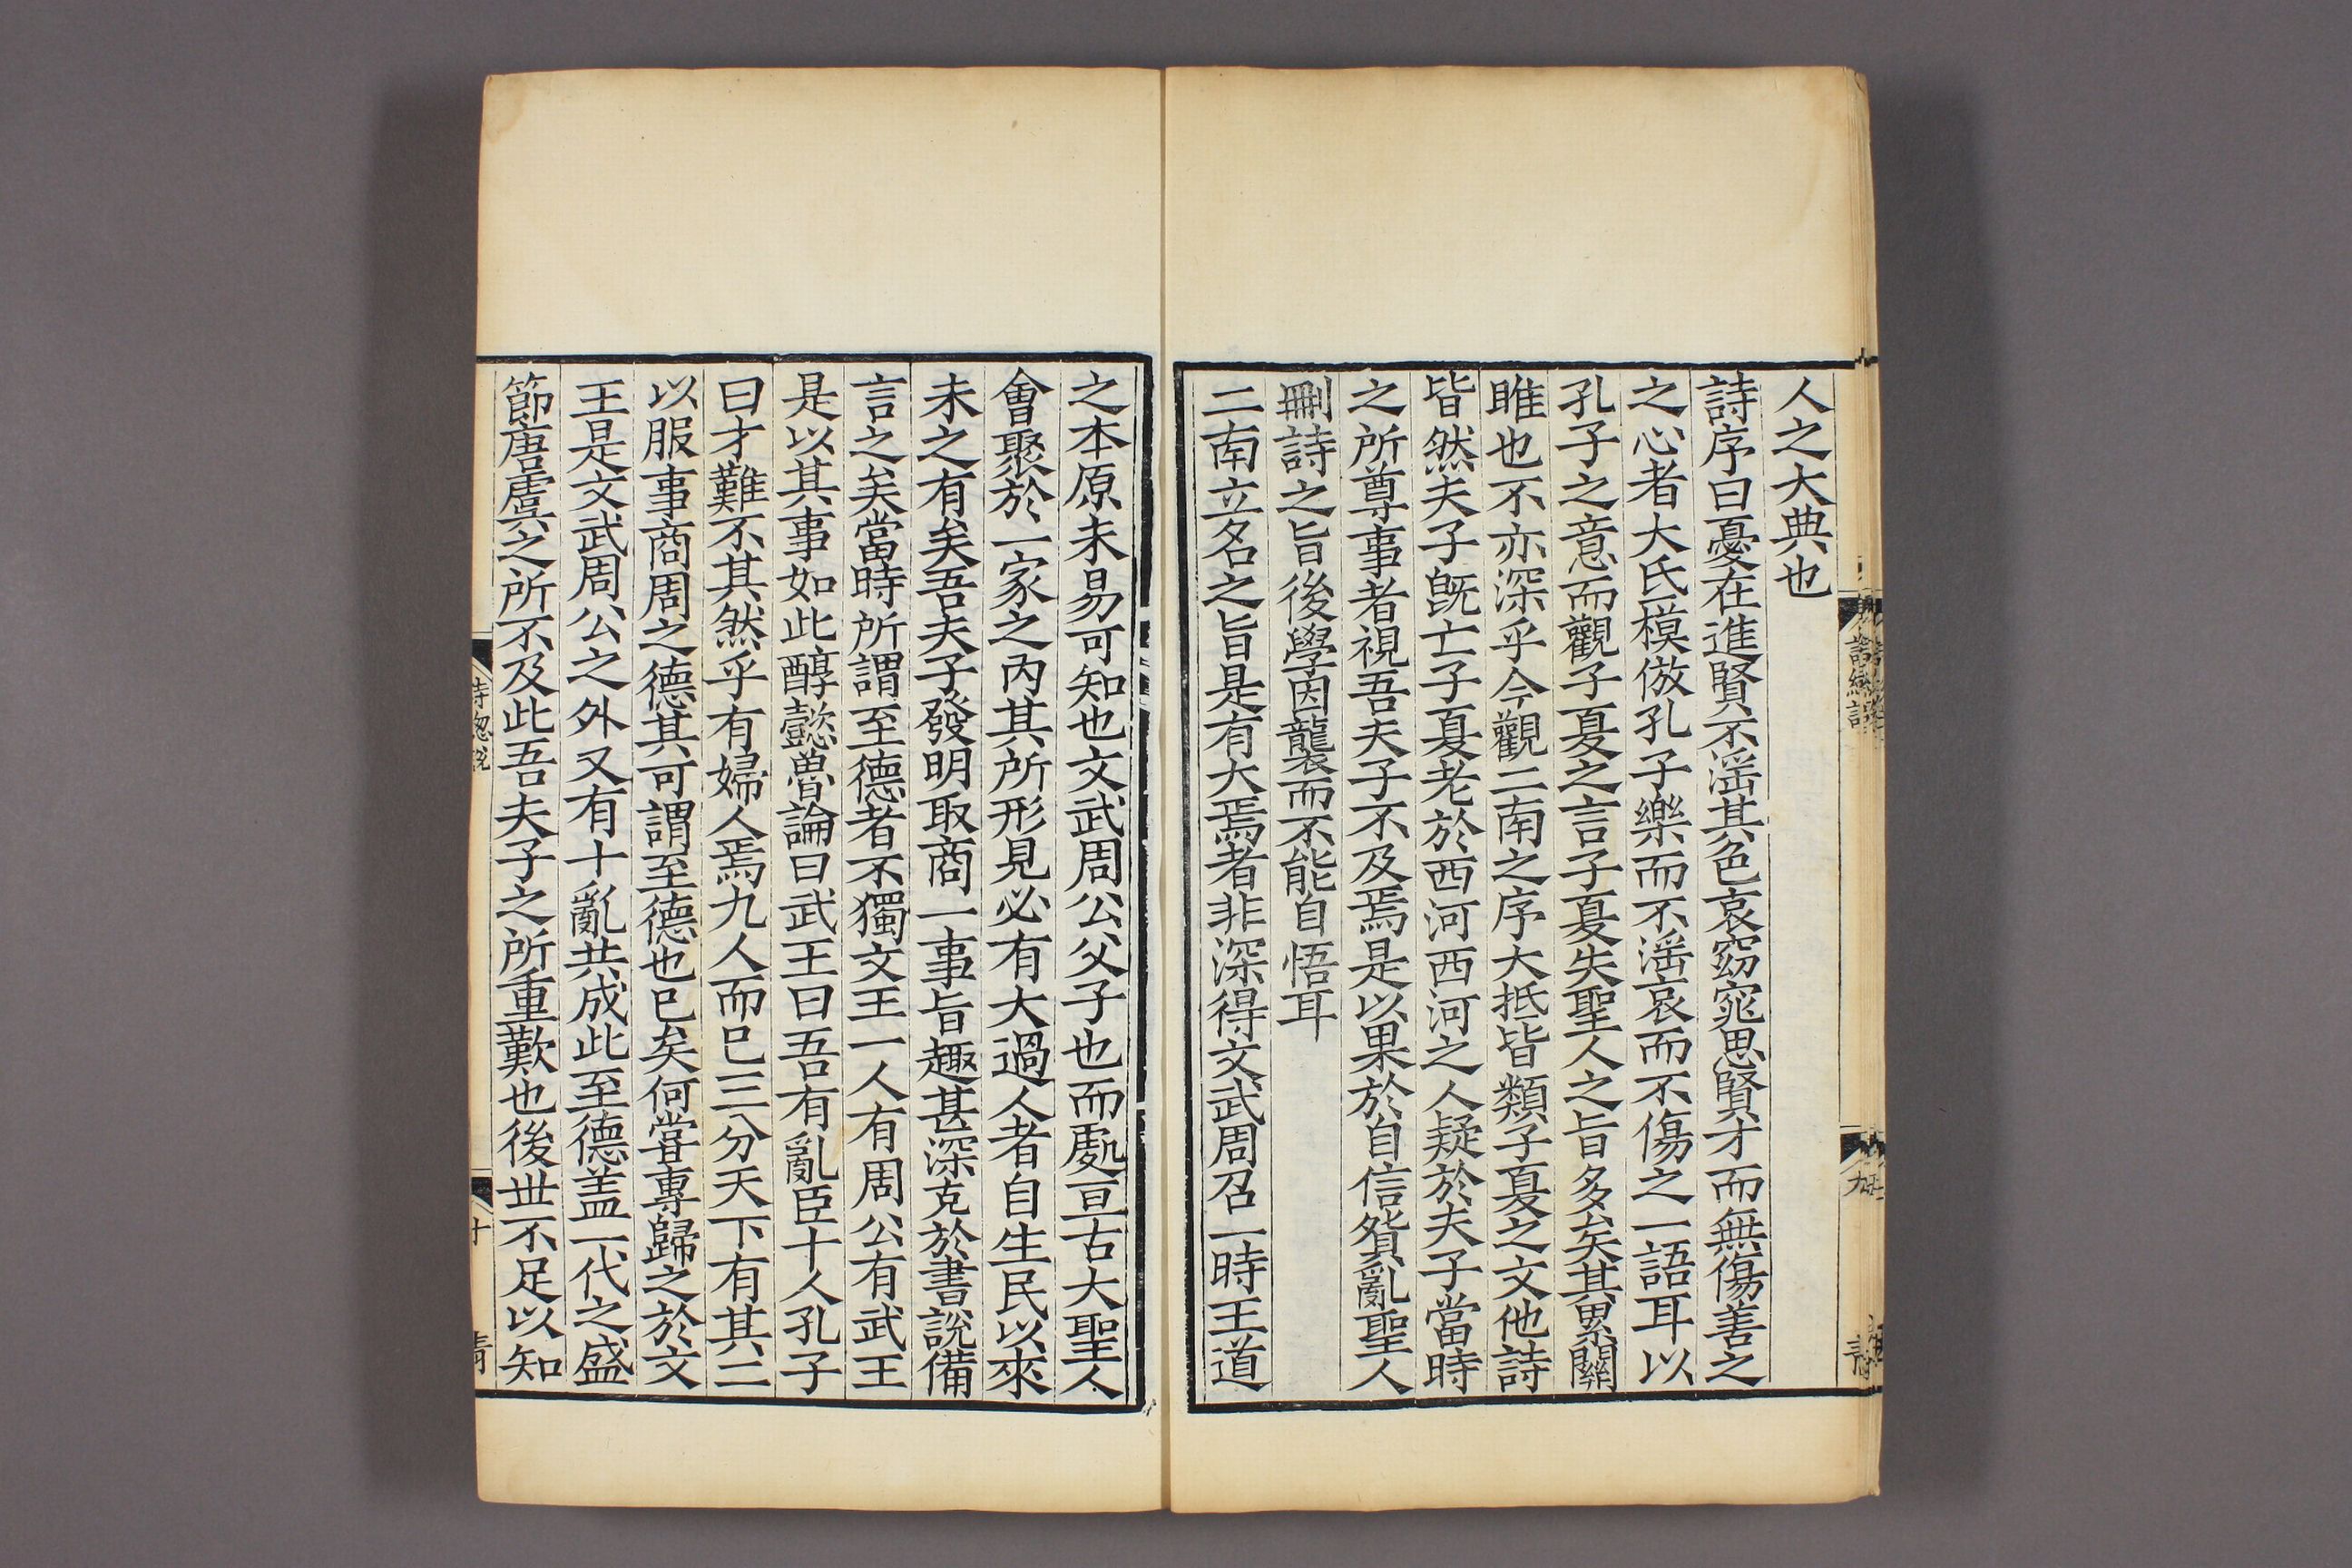 人之大典也
詩序曰憂在進賢不滛其色哀窈窕思賢才而無傷善之
之心者大氐模倣孔子樂而不滛哀而不傷之一語耳以
孔子之意而觀子夏之言子夏失聖人之旨多矣其累關
雎也不亦深乎今觀二南之序大抵皆類子夏之文他詩
皆然夫子旣亡子夏老於西河西河之人疑於夫子當時
之所尊事者視吾夫子不及焉是以果於自信貿亂聖人
刪詩之旨後學因襲而不能自悟耳
二南立名之旨是有大焉者非深得文武周召一時王道
之本原未易可知也文武周公父子也而處亘古大聖人
會聚於一家之內其所形見必有大過人者自生民以來
未之有矣吾夫子發明取商一事旨趣甚深克於書說備
言之矣當時所謂至德者不獨文王一人有周公有武王
是以其事如此醇懿魯論曰武王曰吾有亂臣十人孔子
曰才難不其然乎有婦人焉九人而已三分天下有其二
以服事商周之德其可謂至德也已矣何嘗專歸之於文
王是文武周公之外又有十亂共成此至德盖一代之盛
節唐虞之所不及此吾夫子之所重歎也後世不足以知
詩緫說
十